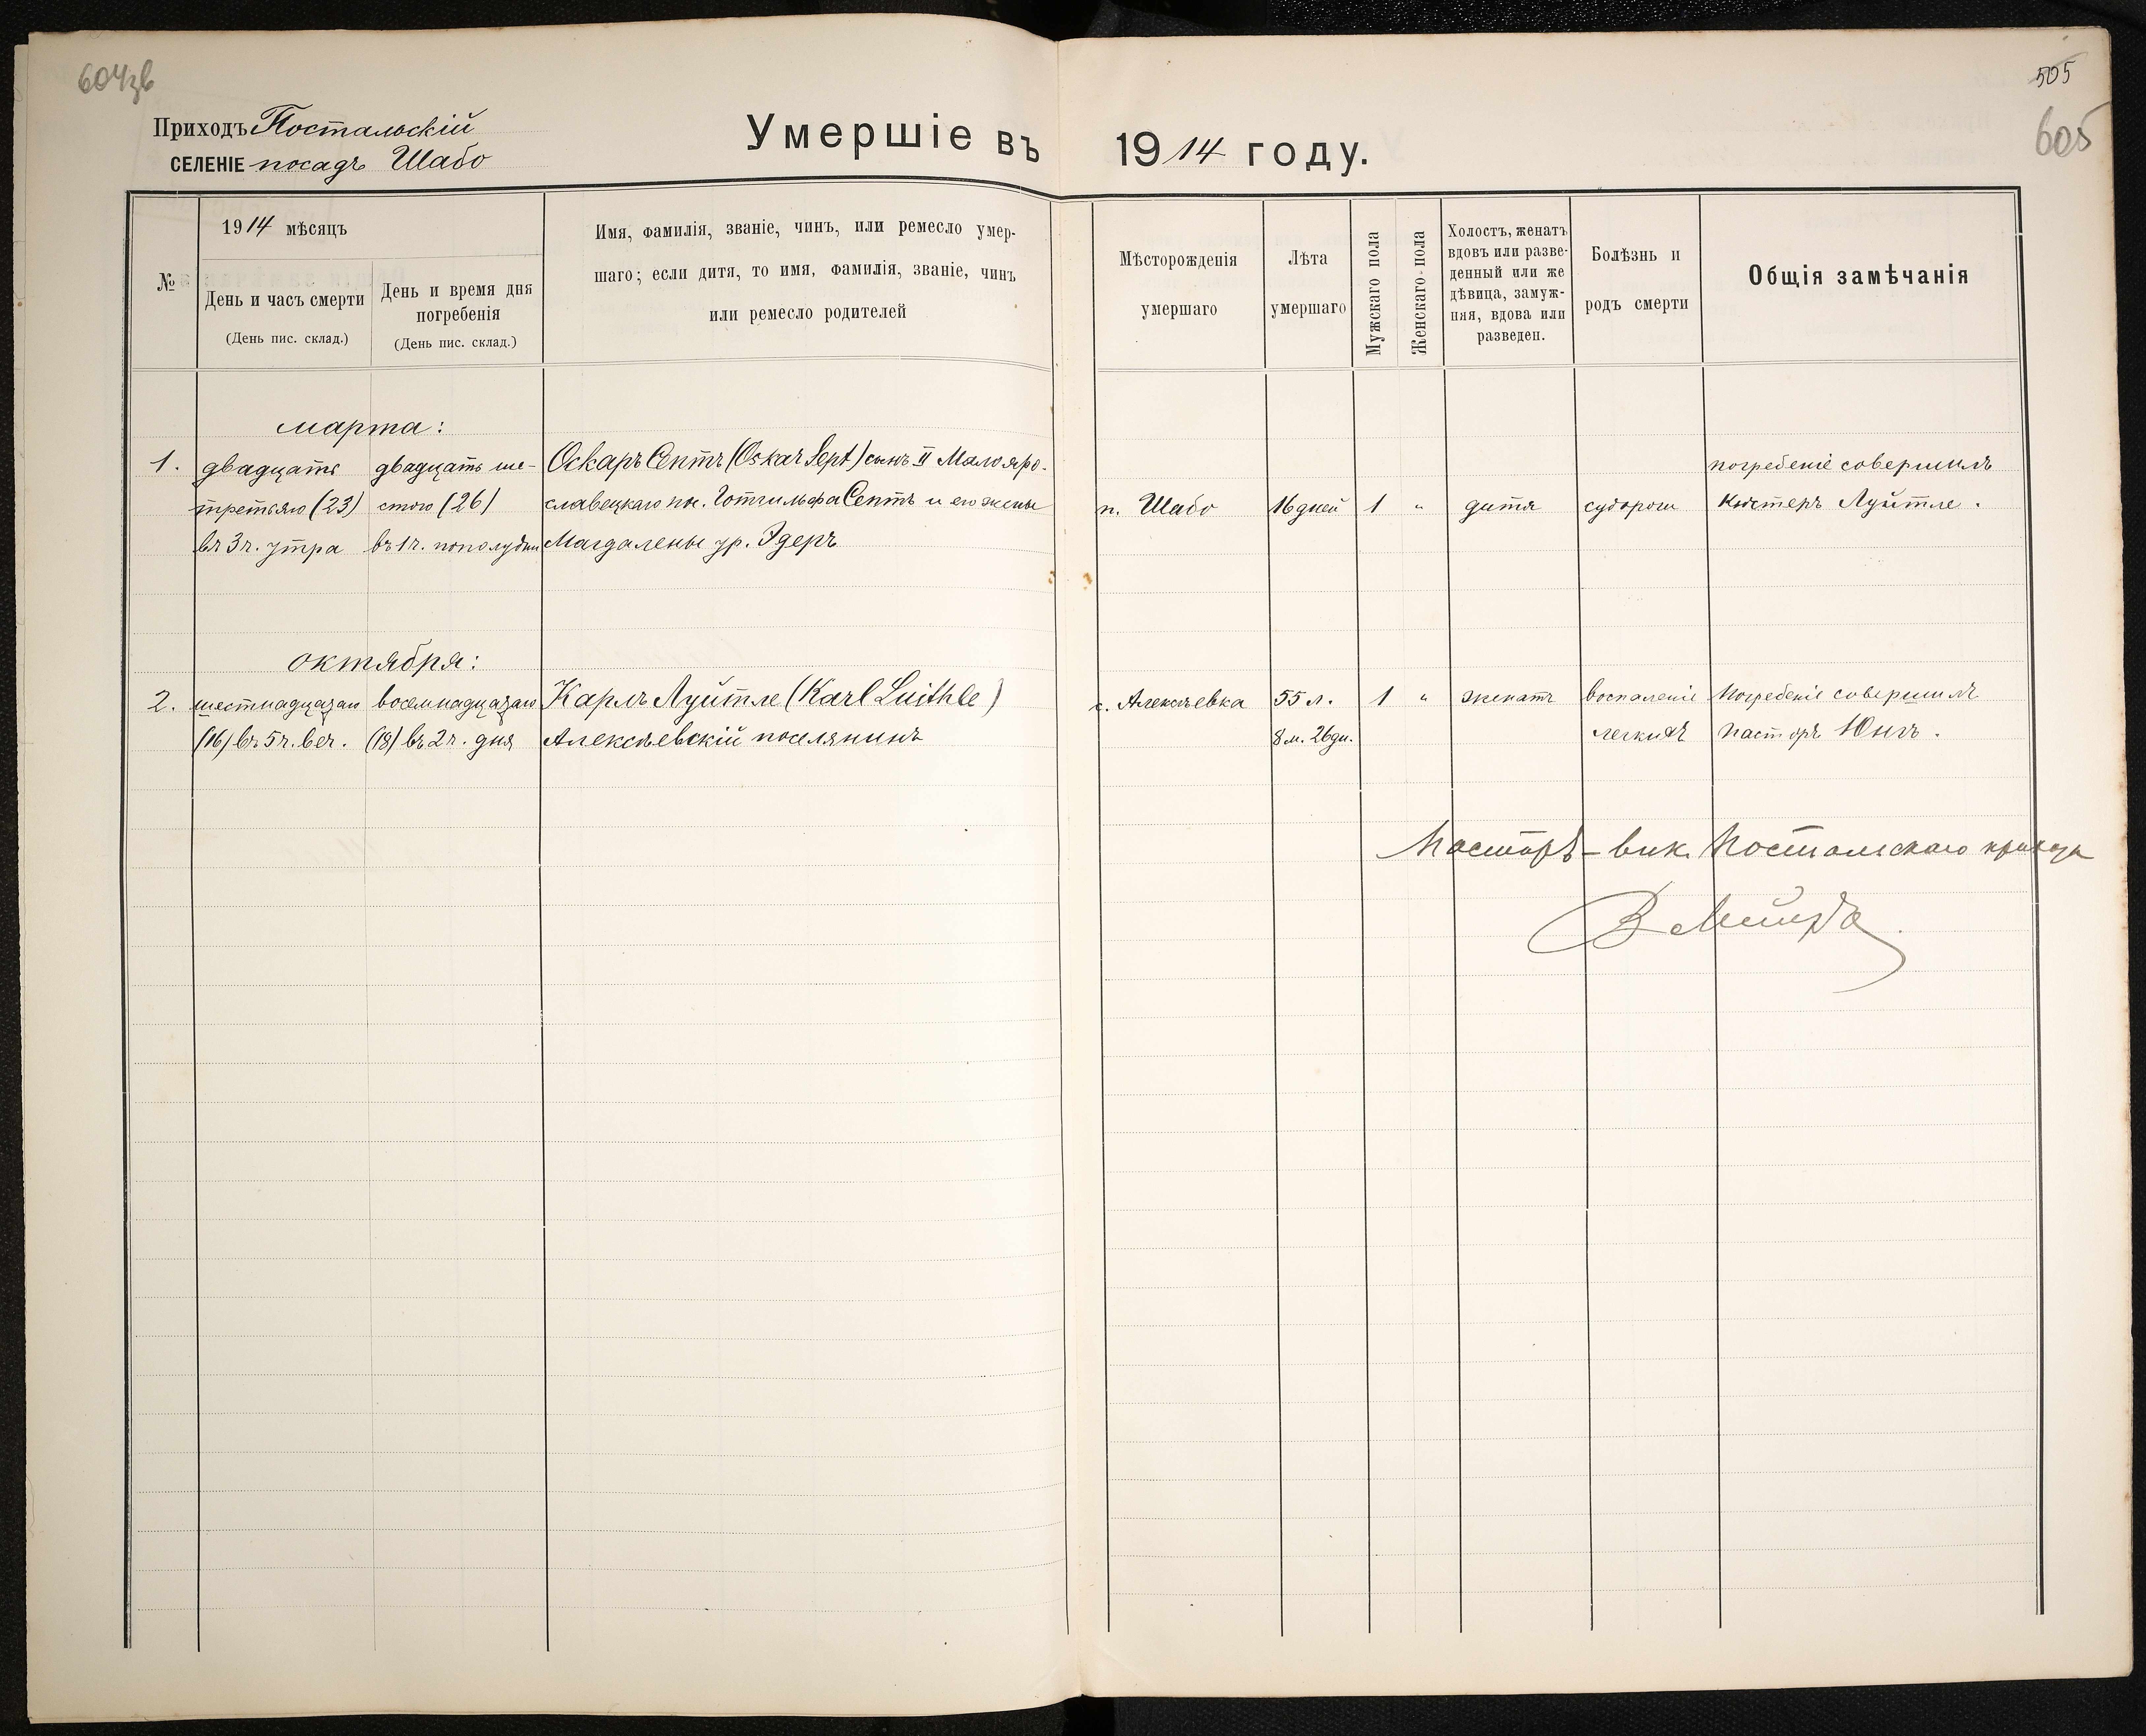 604зв
505
605
Приходъ Постальскій
СЕЛЕНІЕ посадъ Шабо
Умершіе въ 1914 году.
№
1914 мѣсяцъ
День и часъ смерти
(День пис. склад.)
День и время дня
погребенія
(День пис. склад.)
Имя, фамилія, званіе, чинъ, или ремесло умер-
шаго; если дитя, то имя, фамилія, званіе, чинъ
или ремесло родителей
Мѣсторожденія
умершаго
Лѣта
умершаго
Мужскаго пола
Женскаго пола
Холостъ, женатъ
вдовъ или разве-
денный или же
дѣвица, замуж-
няя, вдова или
разведен.
Болѣзнь и
родъ смерти
Общія замѣчанія
марта:
1. двадцать двадцать ше- Оскаръ Септъ (Oskar Sept) сынъ II Малояро- погребеніе совершилъ
третьяго (23) стого (26) славецкаго пос. Готгильфа Септъ и его жены п. Шабо 16 дней 1 " дитя судороги Кюстеръ Луйтле.
въ 3 ч. утра въ 1 ч. пополудни Магдалены ур. Эдеръ
октября:
2. шестнадцатаго восемнадцатаго Карлъ Луйтле (Karl Luithle) с. Алексѣевка 55 л. 1 " женатъ воспаленіе Погребеніе совершилъ
(16) въ 5 ч. веч. (18) въ 2 ч. дня Алексѣевскій поселянинъ 8 м. 26 дн. легкихъ пасторъ Юнгъ.
Пасторъ-вик. Постальскаго прихода